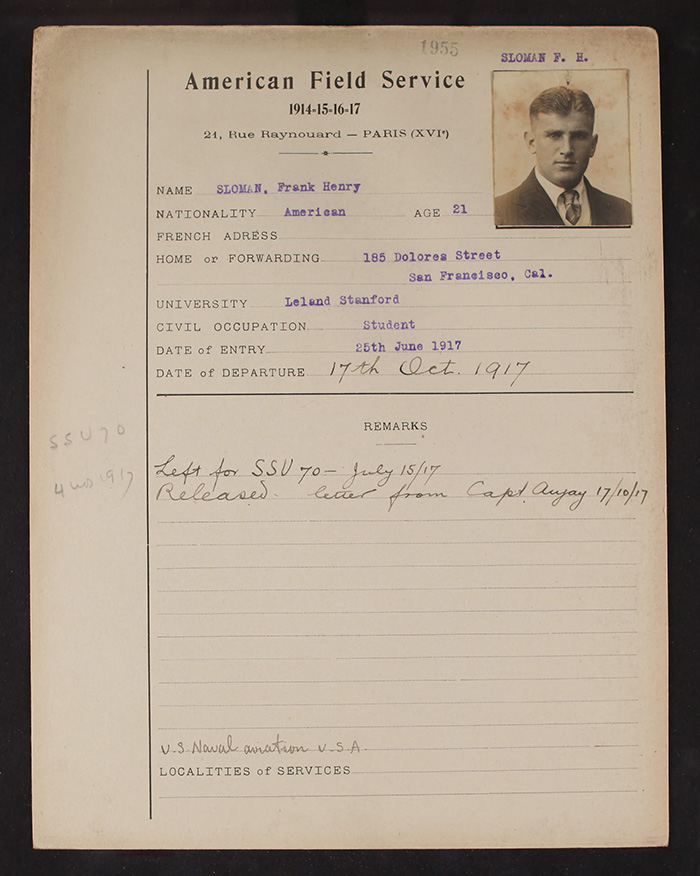 1955
SLOMAN F. H.
American Field Service
1914-15-16-17
21, Rue Raynouard — PARIS (XVIᵉ)
NAME SLOMAN, Frank Henry
NATIONALITY American AGE 21
FRENCH ADRESS
HOME or FORWARDING 185 Dolores Street
San Francisco, Cal.
UNIVERSITY Leland Stanford
CIVIL OCCUPATION Student
DATE of ENTRY 25th June 1917
DATE of DEPARTURE 17th Oct. 1917
REMARKS
SSU 70
Left for SSU 70 - July 15/17
4 mos 1917
Released. letter from Capt. 17/10/17
U.S. Naval aviation U.S.A.
LOCALITIES of SERVICES